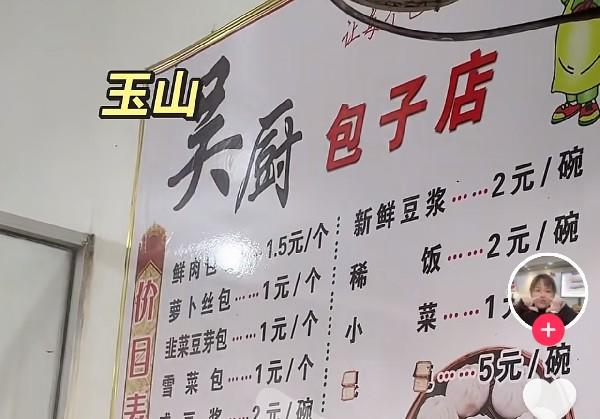 玉山
吴厨 包子店
价目表
鲜肉包……1.5元/个
萝卜丝包……1元/个
韭菜豆芽包……1元/个
雪菜包……1元/个
豆浆……2元/碗
新鲜豆浆……2元/碗
稀饭……2元/碗
小菜……1
……5元/碗